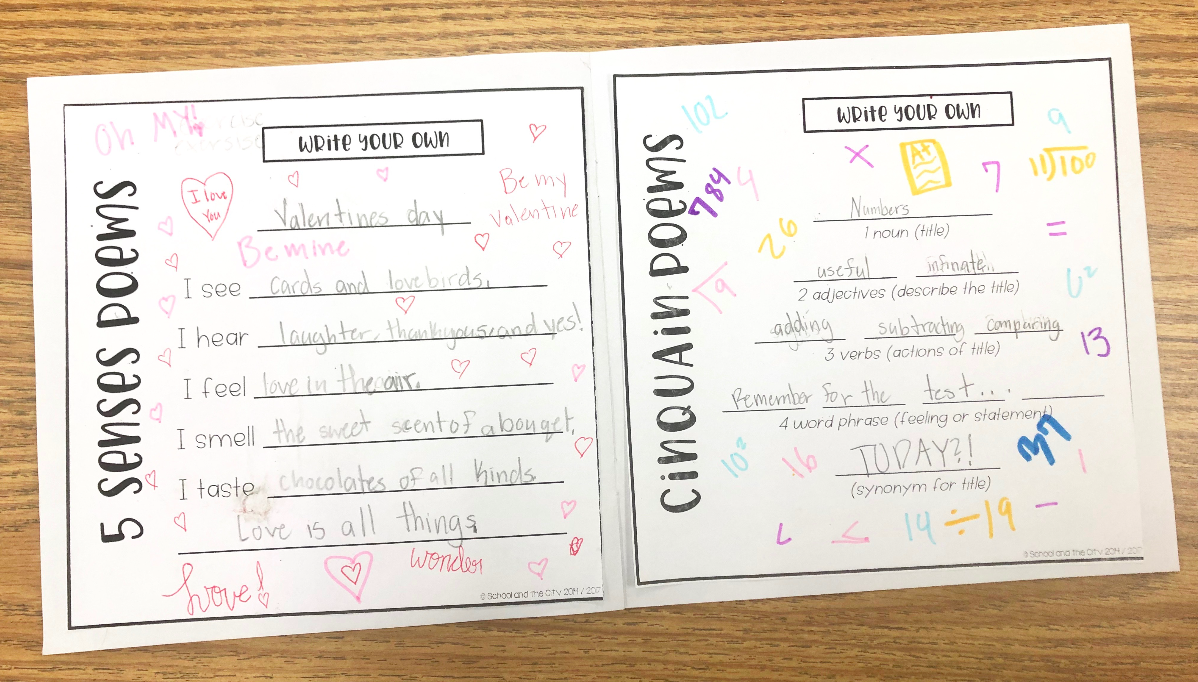 Oh MY!
WRITE YOUR OWN
5 senses poems
I love
You
Be my
Valentine
Valentines day
Be mine
I see cards and lovebirds.
I hear laughter, thankyouse and yes!
I feel love in the air.
I smell the sweet scent of a bouqet.
I taste chocolates of all kinds.
Love is all things
wonder
Love!
© School and the City 2014 / 2017
WRITE YOUR OWN
CINQUAIN POEMS
102
9
x
A+
7
11)100
784
4
26
Numbers
1 noun (title)
=
√9
useful infinate.
2 adjectives (describe the title)
6²
adding subtracting comparing
3 verbs (actions of title)
13
Remember for the test...
4 word phrase (feeling or statement)
10²
16
TODAY?!
(synonym for title)
37
1
<
14 ÷ 19
−
© School and the City 2014 / 2017